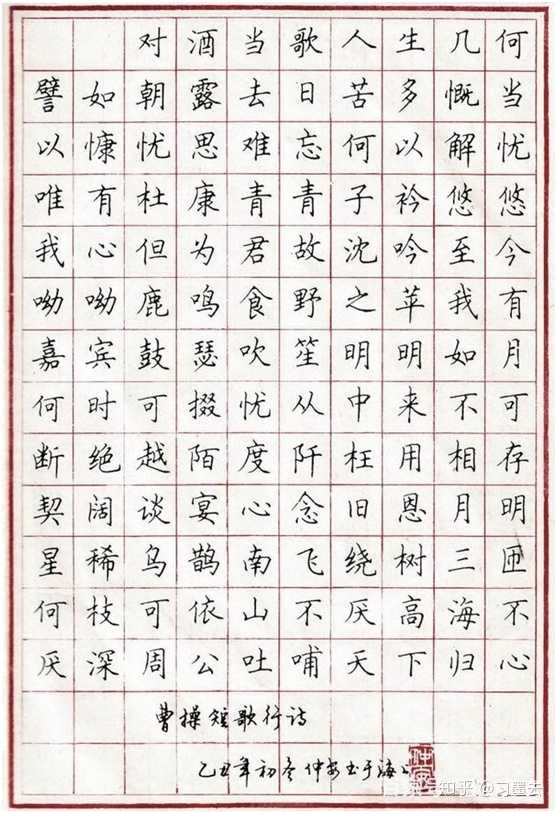 对酒当歌人生几何
譬如朝露去日苦多慨当
以慷忧思难忘何以解忧
唯有杜康青青子衿悠悠
我心但为君故沈吟至今
呦呦鹿鸣食野之苹我有
嘉宾鼓瑟吹笙明明如月
何时可掇忧从中来不可
断绝越陌度阡枉用相存
契阔谈宴心念旧恩月明
星稀乌鹊南飞绕树三匝
何枝可依山不厌高海不
厌深周公吐哺天下归心
曹操短歌行诗
乙丑年初冬仲安书于海上
知乎 @习墨去